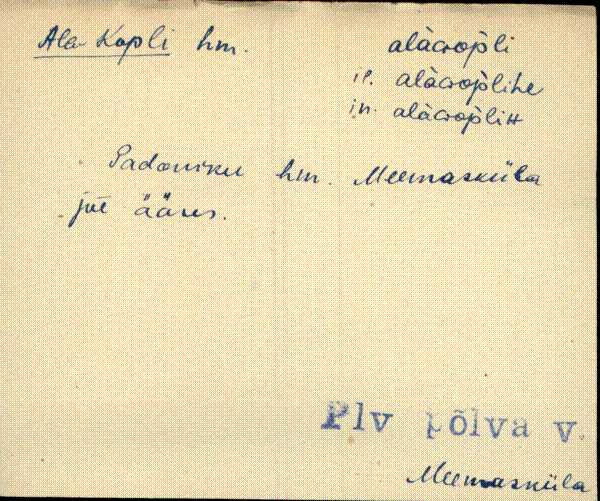 Ala-Kopli hm. alàkop̀li
il. alàkop̀lihe
in. alàkop̀lih
Sadoniku hm. Meemasküla
jõe ääres.
Plv Põlva v.
Meemasküla